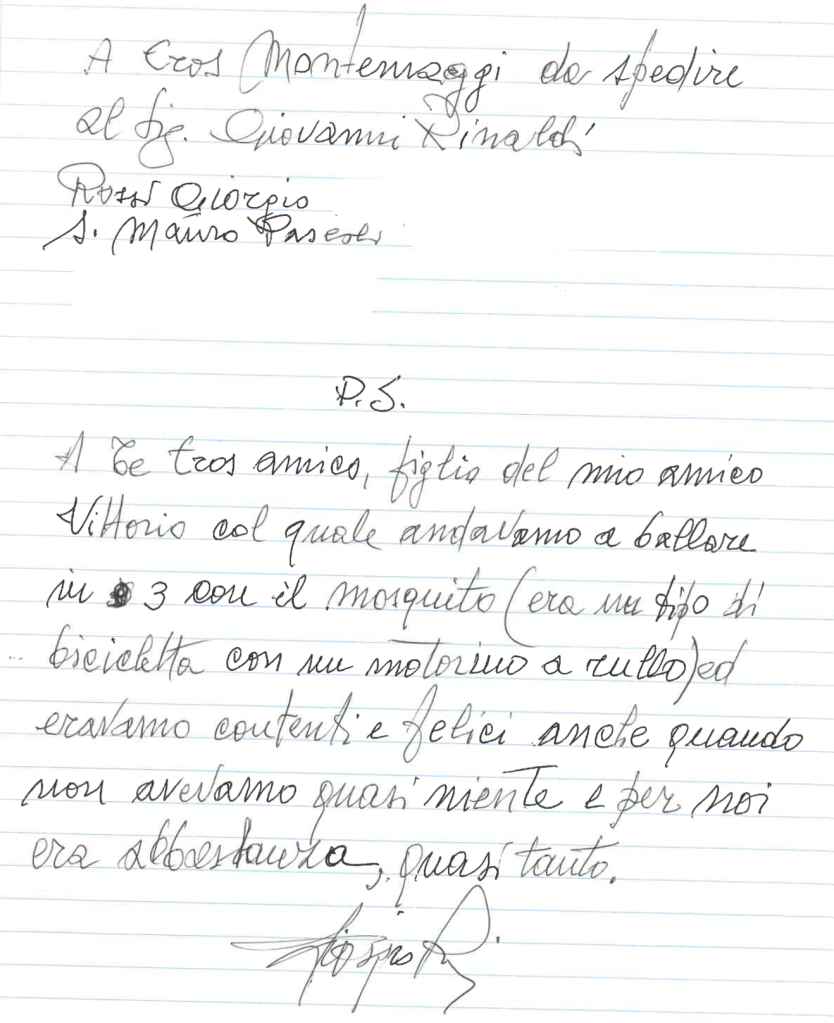 A Eros Montemaggi da spedire
al sig. Giovanni Rinaldi
Rossi Giorgio
S. Mauro Pascoli
P.S.
A Te Eros amico, figlio del mio amico
Vittorio col quale andavamo a ballare
in 3 con il mosquito (era un tipo di
bicicletta con un motorino a rullo) ed
eravamo contenti e felici anche quando
non avevamo quasi niente e per noi
era abbastanza, quasi tanto.
Giorgio R.